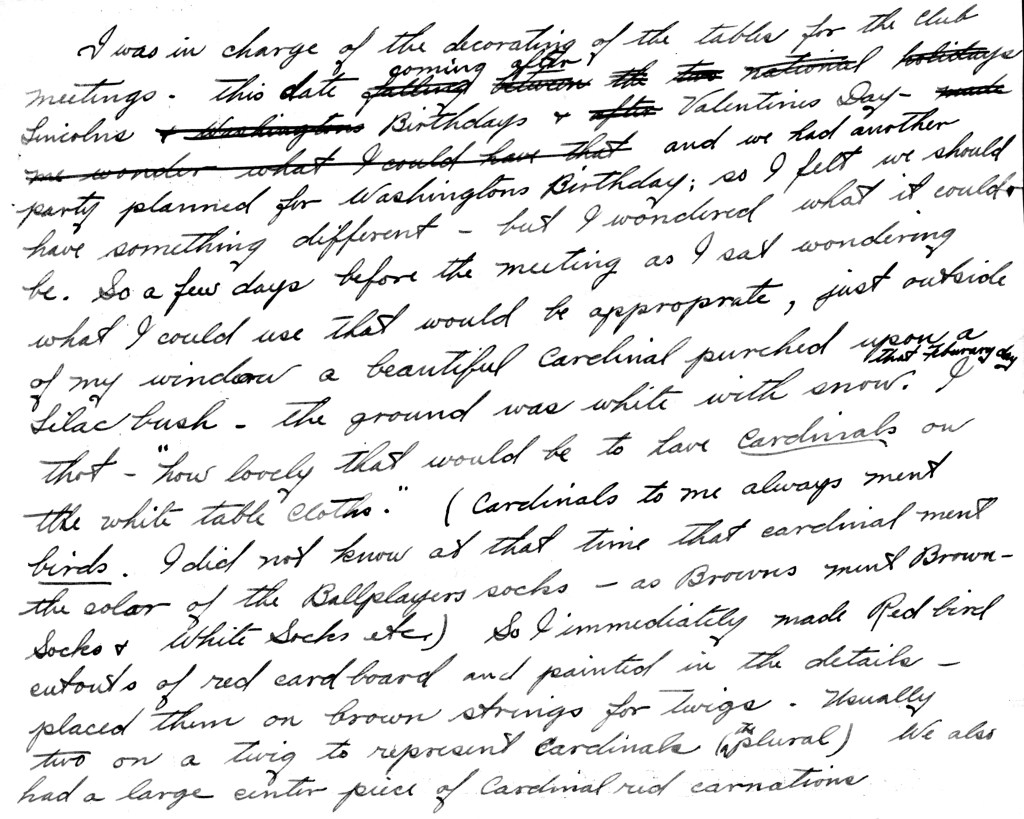 I was in charge of the decorating of the tables for the club
coming after
meetings - this date falling between the two national holidays
Lincolns & Washingtons Birthdays & after Valentines Day - made
me wonder what I could have that and we had another
party planned for Washingtons Birthday; so I felt we should
have something different - but I wondered what it could
be. So a few days before the meeting as I sat wondering
what I could use that would be approprate, just outside
of my window a beautiful Cardinal purched upon a
that Feburary day
Lilac bush - the ground was white with snow. I
thot - "how lovely that would be to have Cardinals on
the white table cloths." (Cardinals to me always ment
birds. I did not know at that time that cardinal ment
the color of the Ballplayers socks - as Browns ment Brown-
Socks & White Socks etc.) So I immediately made Redbird
cutouts of red cardboard and painted in the details -
placed them on brown strings for twigs. Usually
two on a twig to represent Cardinals (the plural) We also
had a large center piece of Cardinal red carnations